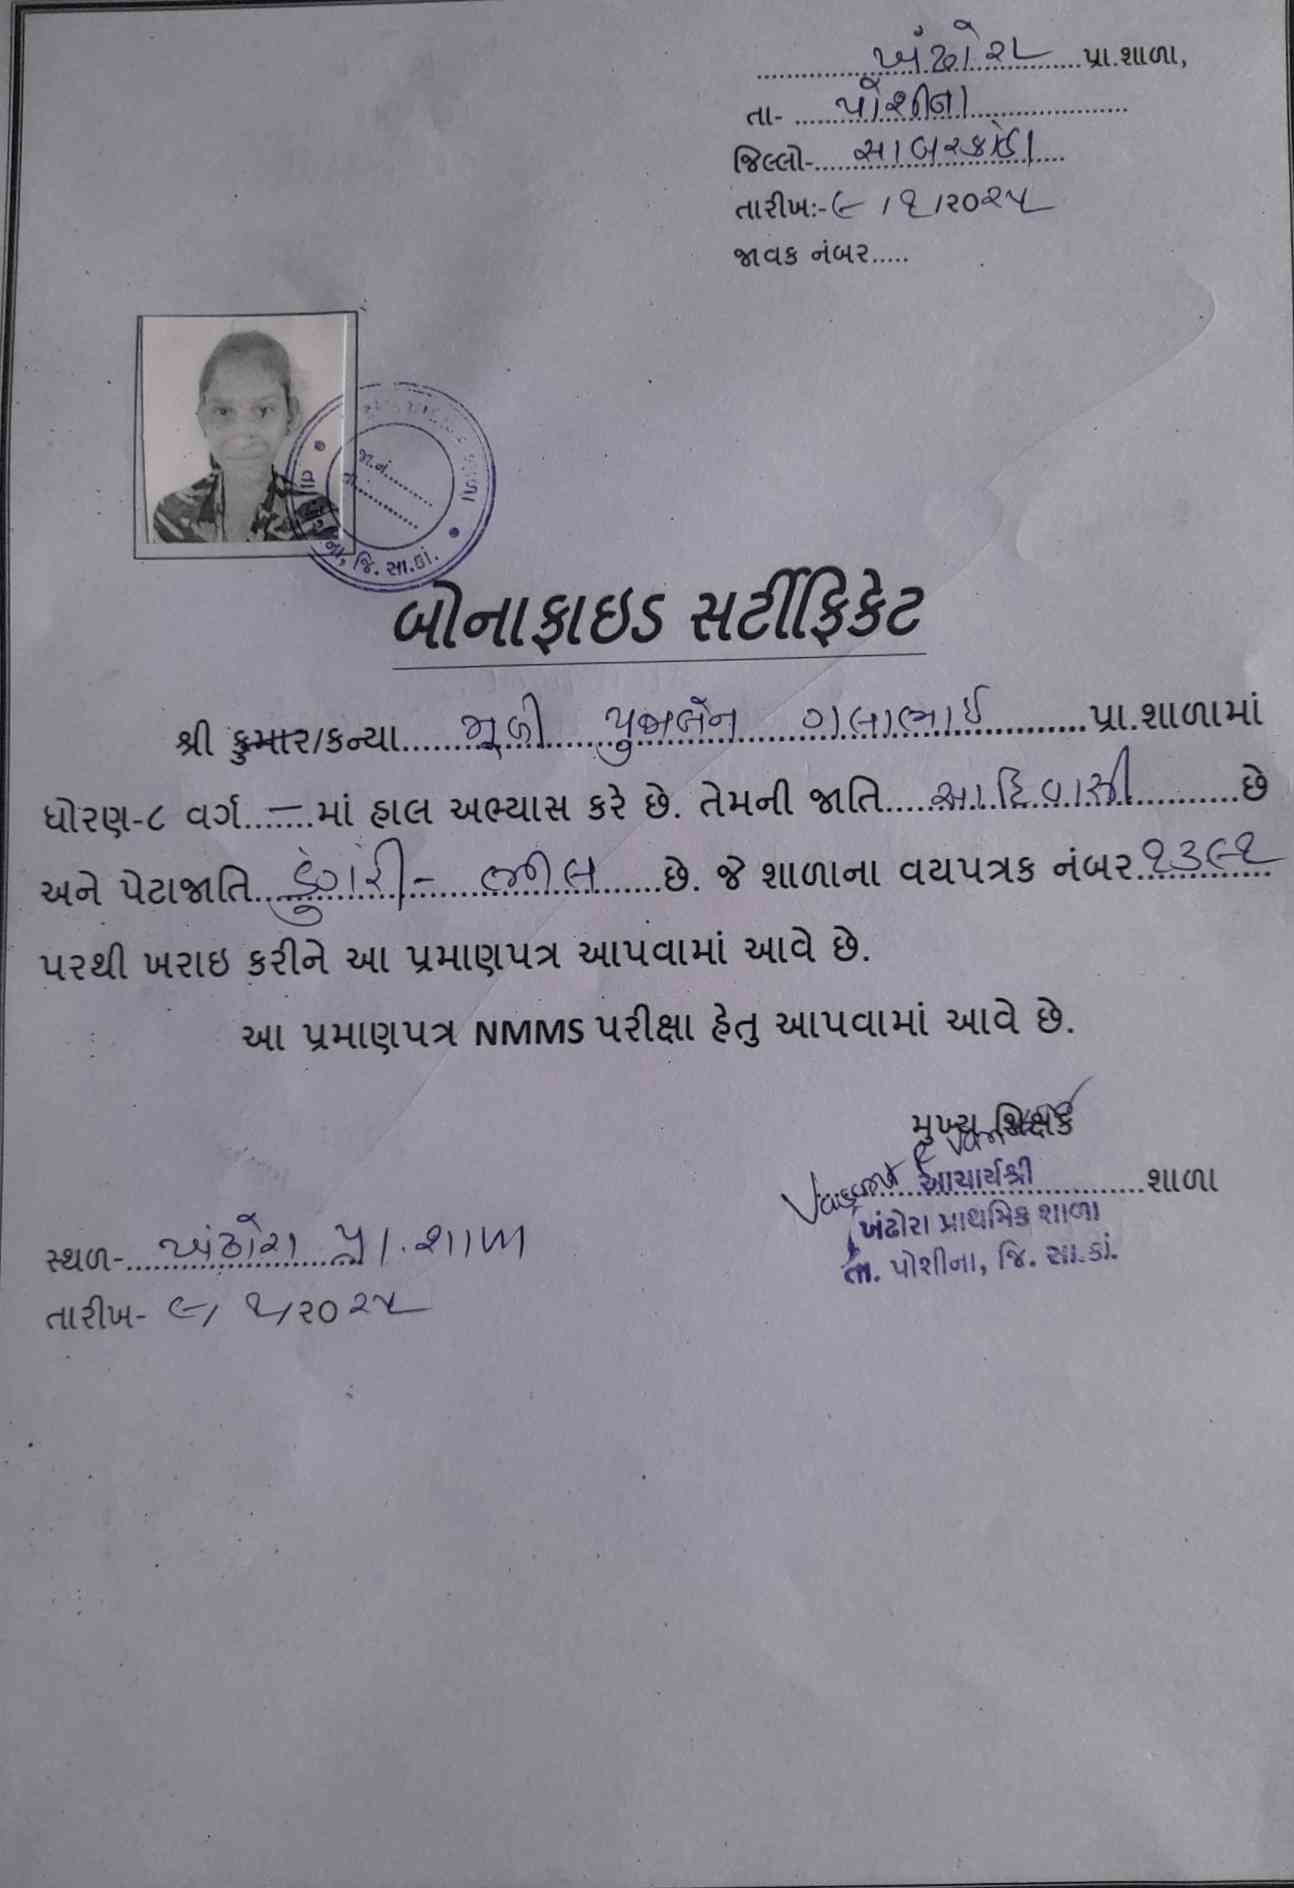 ખંઢોરા પ્રા.શાળા,
તા- પોશીના
જિલ્લો- સાબરકાંઠા
તારીખ:- ૯/૧/૨૦૨૫
જાવક નંબર.....
જા.નં.
તા.
જિ. સા.કાં.
બોનાફાઇડ સર્ટીફિકેટ
શ્રી કુમાર/કન્યા ગલાભાઈ પ્રા.શાળામાં
ધોરણ-૮ વર્ગ.. – ..માં હાલ અભ્યાસ કરે છે. તેમની જાતિ આદિવાસી છે
અને પેટાજાતિ ડુંગરી - ભીલ છે. જે શાળાના વયપત્રક નંબર ૧૩૯૧
પરથી ખરાઇ કરીને આ પ્રમાણપત્ર આપવામાં આવે છે.
આ પ્રમાણપત્ર NMMS પરીક્ષા હેતુ આપવામાં આવે છે.
મુખ્ય શિક્ષક
આચાર્યશ્રી શાળા
ખંઢોરા પ્રાથમિક શાળા
તા. પોશીના, જિ. સા.કાં.
સ્થળ- ખંઢોરા પ્રા. શાળા
તારીખ- ૯/૧/૨૦૨૫